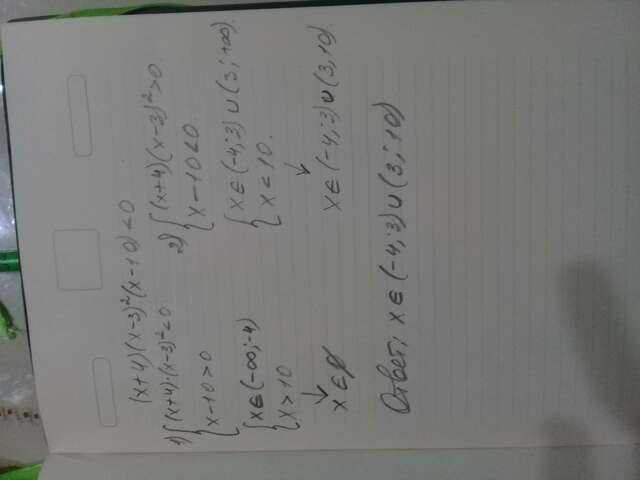 (x+4)(x-3)²(x-10)<0
1) { (x+4)·(x-3)²<0
x-10>0
{ x∈(-∞;-4)
x>10
↓
x∈∅
2) { (x+4)(x-3)²>0.
x-10<0.
{ x∈(-4;3)∪(3;+∞).
x<10.
↓
x∈(-4;3)∪(3,10).
Ответ: x∈(-4;3)∪(3;10)